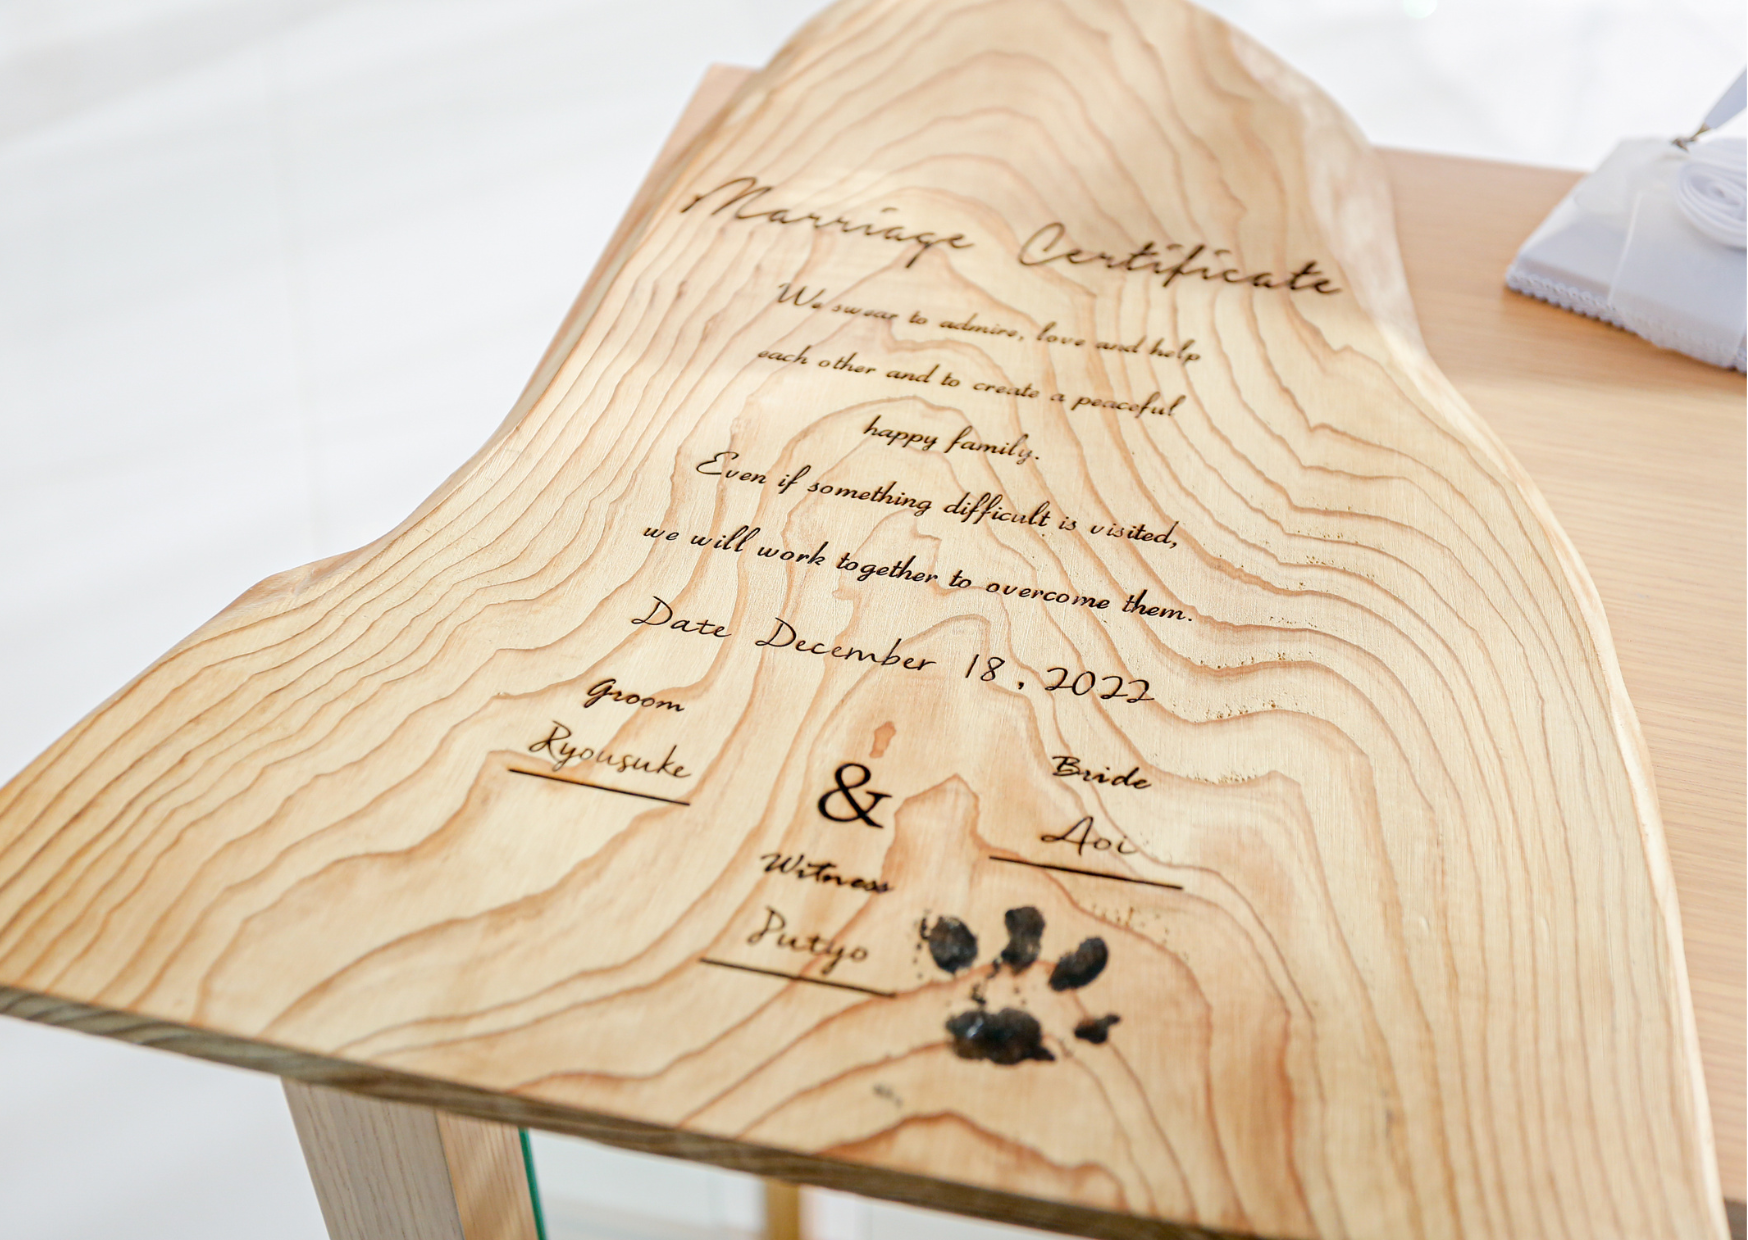 Marriage Certificate
We swear to admire, love and help
each other and to create a peaceful
happy family.
Even if something difficult is visited,
we will work together to overcome them.
Date December 18, 2022
Groom
Ryousuke
&
Bride
Aoi
Witness
Putyo